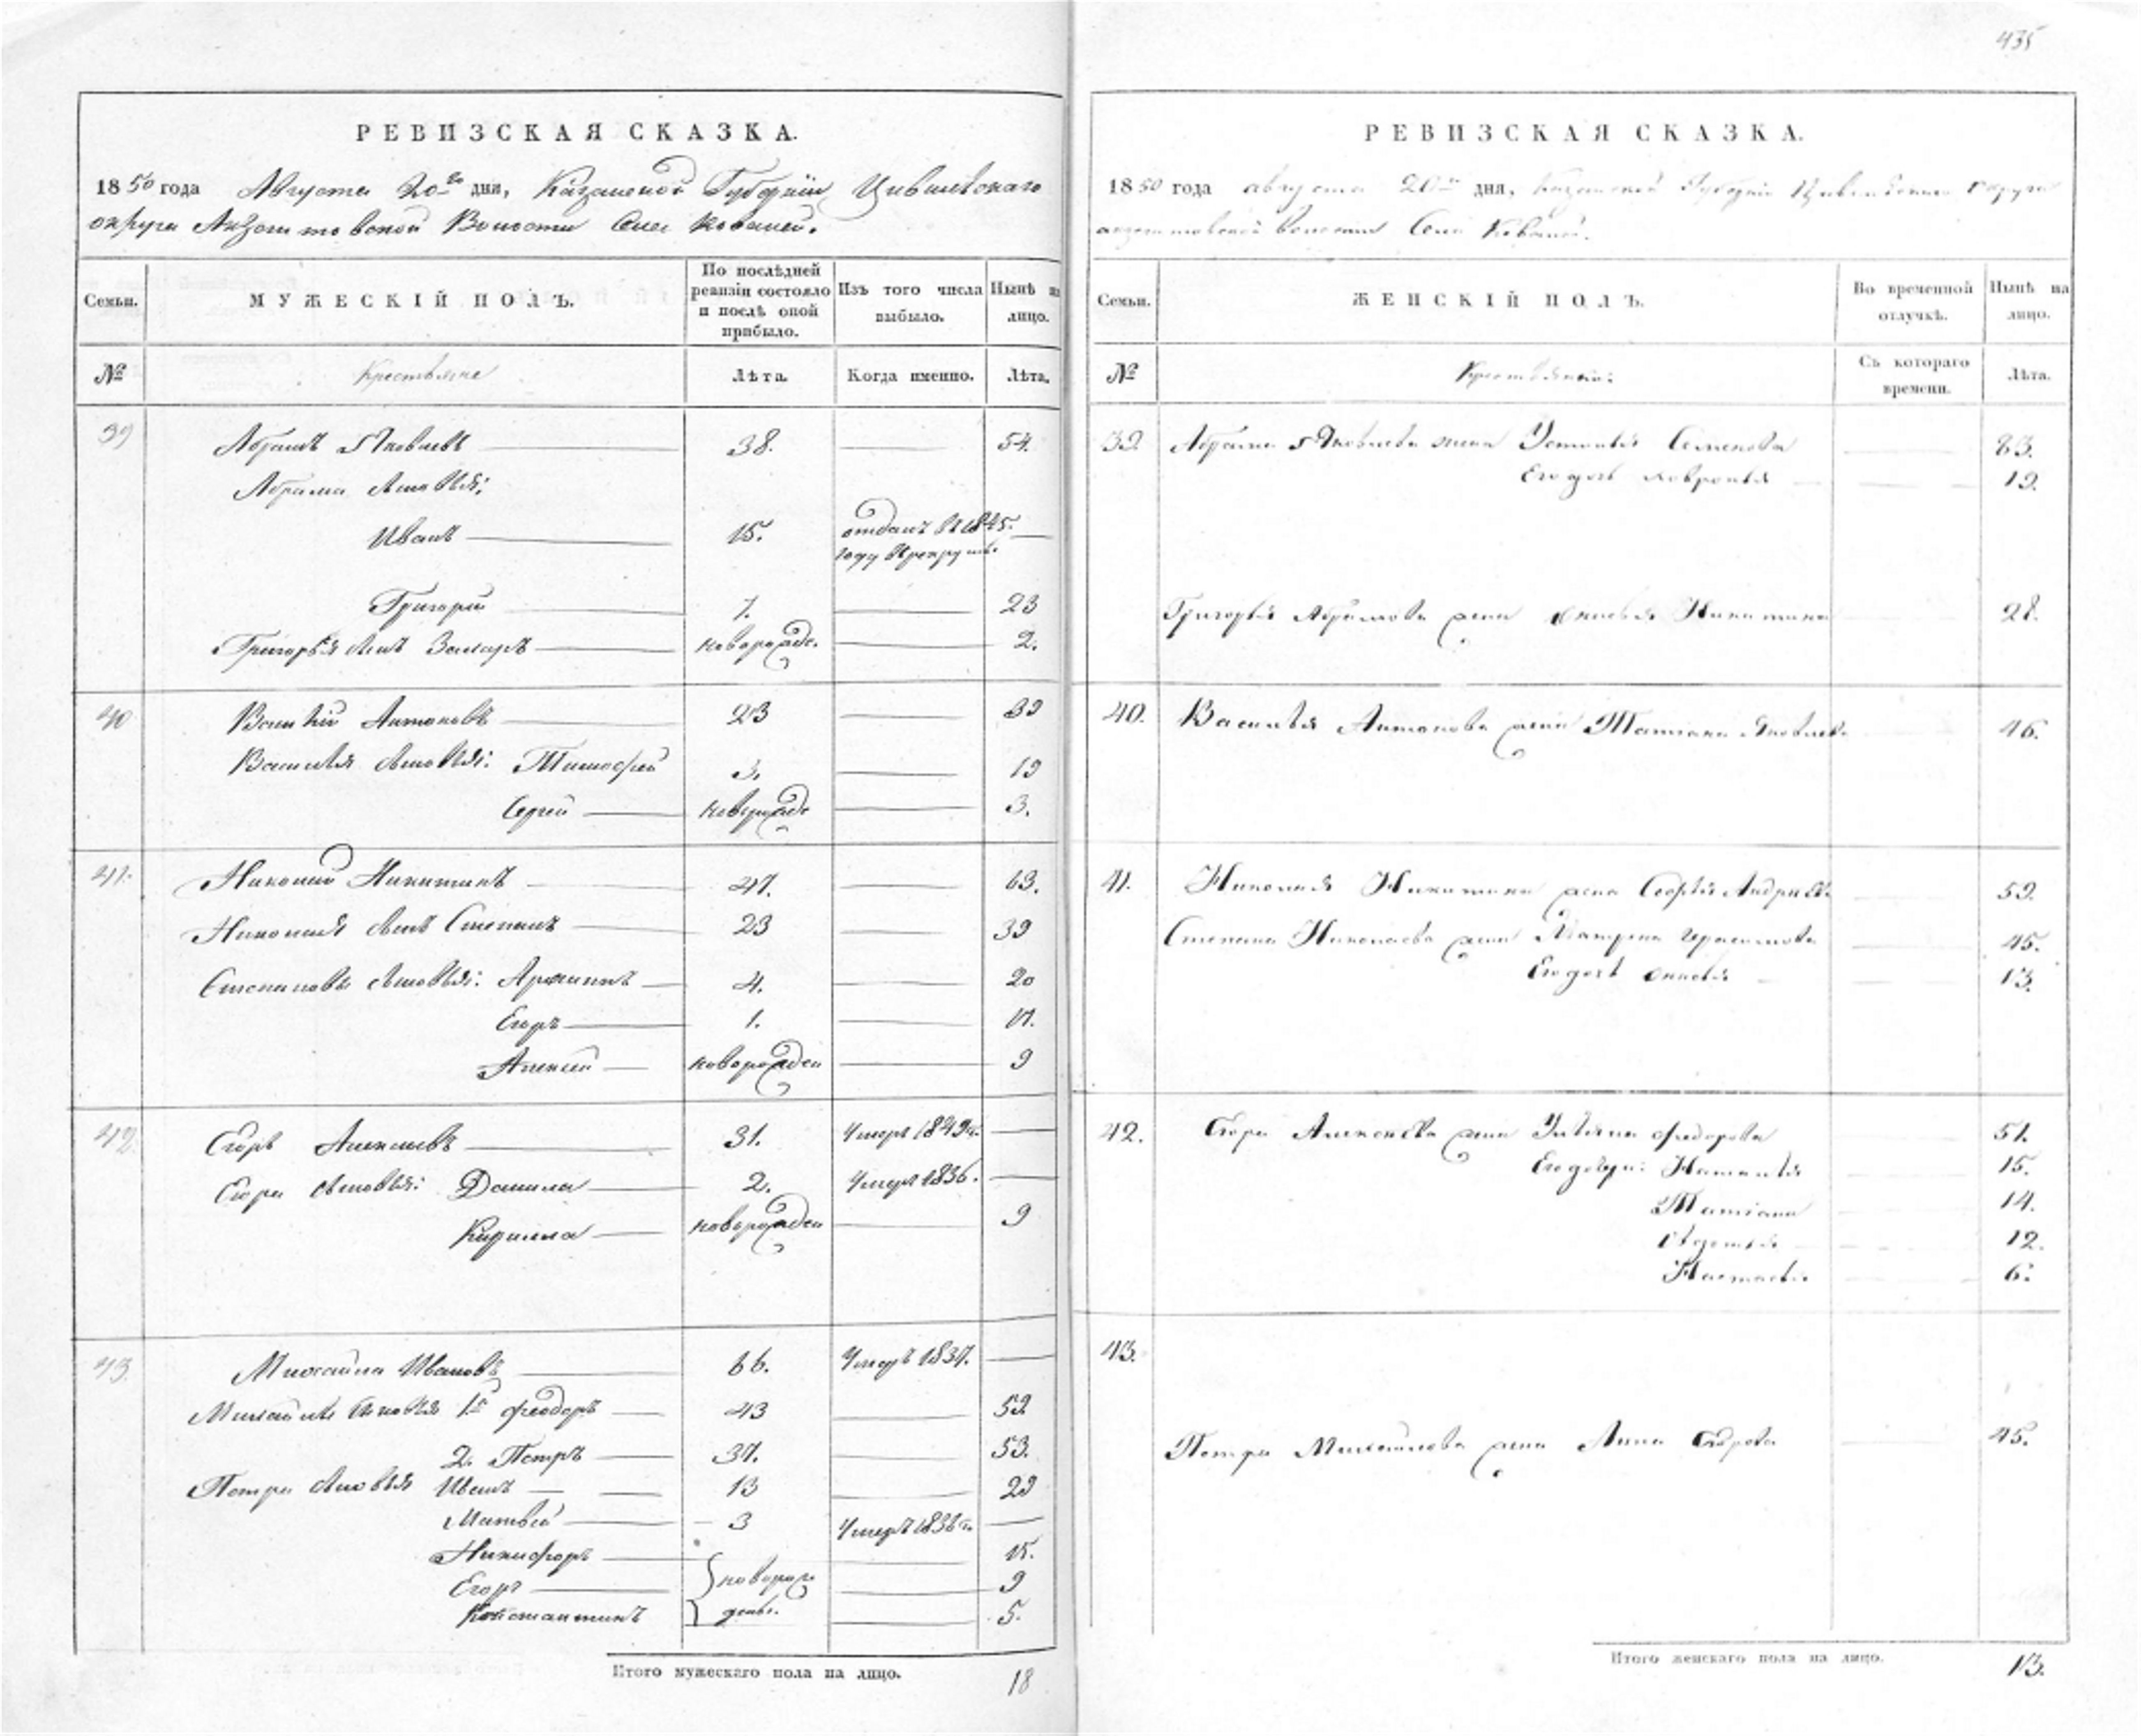 435
РЕВИЗСКАЯ СКАЗКА.
1850 года Августа 20го дня, Казанской Губерніи, Цивильскаго
округа Волости Села Ковалей.
Семьи. МУЖЕСКІЙ ПОЛЪ. По послѣдней ревизіи состояло и послѣ оной прибыло. Изъ того числа выбыло. Нынѣ на лицо.
№ Крестьяне Лѣта. Когда именно. Лѣта.
39 Абрамъ Яковлевъ 38. 54.
Абрама сыновья:
Иванъ 15. отданъ въ 1845.
году въ рекруты.
Григорій 7. 23
Григорья сынъ Захаръ новорожде. 2.
40 Василій Антоновъ 23 39
Василья сыновья: Тимофей 3. 19
Сергей новорожде 3.
41. Николай Никитинъ 47. 63.
Николая сынъ Степанъ 23 39
Степановы сыновья: 4. 20
Егоръ 1. 17.
Алексей новорожден 9
42 Егоръ Алексеевъ 31. Умеръ 1849г.
Егора сыновья: Данила 2. Умеръ 1836.
Кирилла новорожден 9
43. Михайла Ивановъ 66. Умеръ 1837.
Михайлы сыновья 1й Феодоръ 43 59
2. Петръ 37. 53.
Петра сыновья Иванъ 13 29
Матвей 3 Умеръ 1836г.
Никифоръ 15.
Егоръ новорож 9
Константинъ деные. 5.
Итого мужескаго пола на лицо. 18
РЕВИЗСКАЯ СКАЗКА.
1850 года августа 20го дня, Казанской Губерніи Цивильскаго округа
Волости Села Ковалей.
Семьи. ЖЕНСКІЙ ПОЛЪ. Во временной отлучкѣ. Нынѣ на лицо.
№ Крестьянки: Съ котораго времени. Лѣта.
39. Абрама Яковлева жена Устинья Семенова
Его дочь Ховронья 19.
Григорья Абрамова жена Никитина 28.
40. Василья Антонова жена Татіана Яковлева 46.
41. Николая Никитина жена Софья Андреева 59.
Степана Николаева жена Матрена Герасимова 45.
Его дочь 13.
42. Егора Алексеева жена Ульяна Федорова 51.
Его дочери: Наталья 15.
Татіана 14.
Авдотья 12.
Настасья 6.
43.
Петра Михайлова жена Анна Егорова 45.
Итого женскаго пола на лицо. 13.